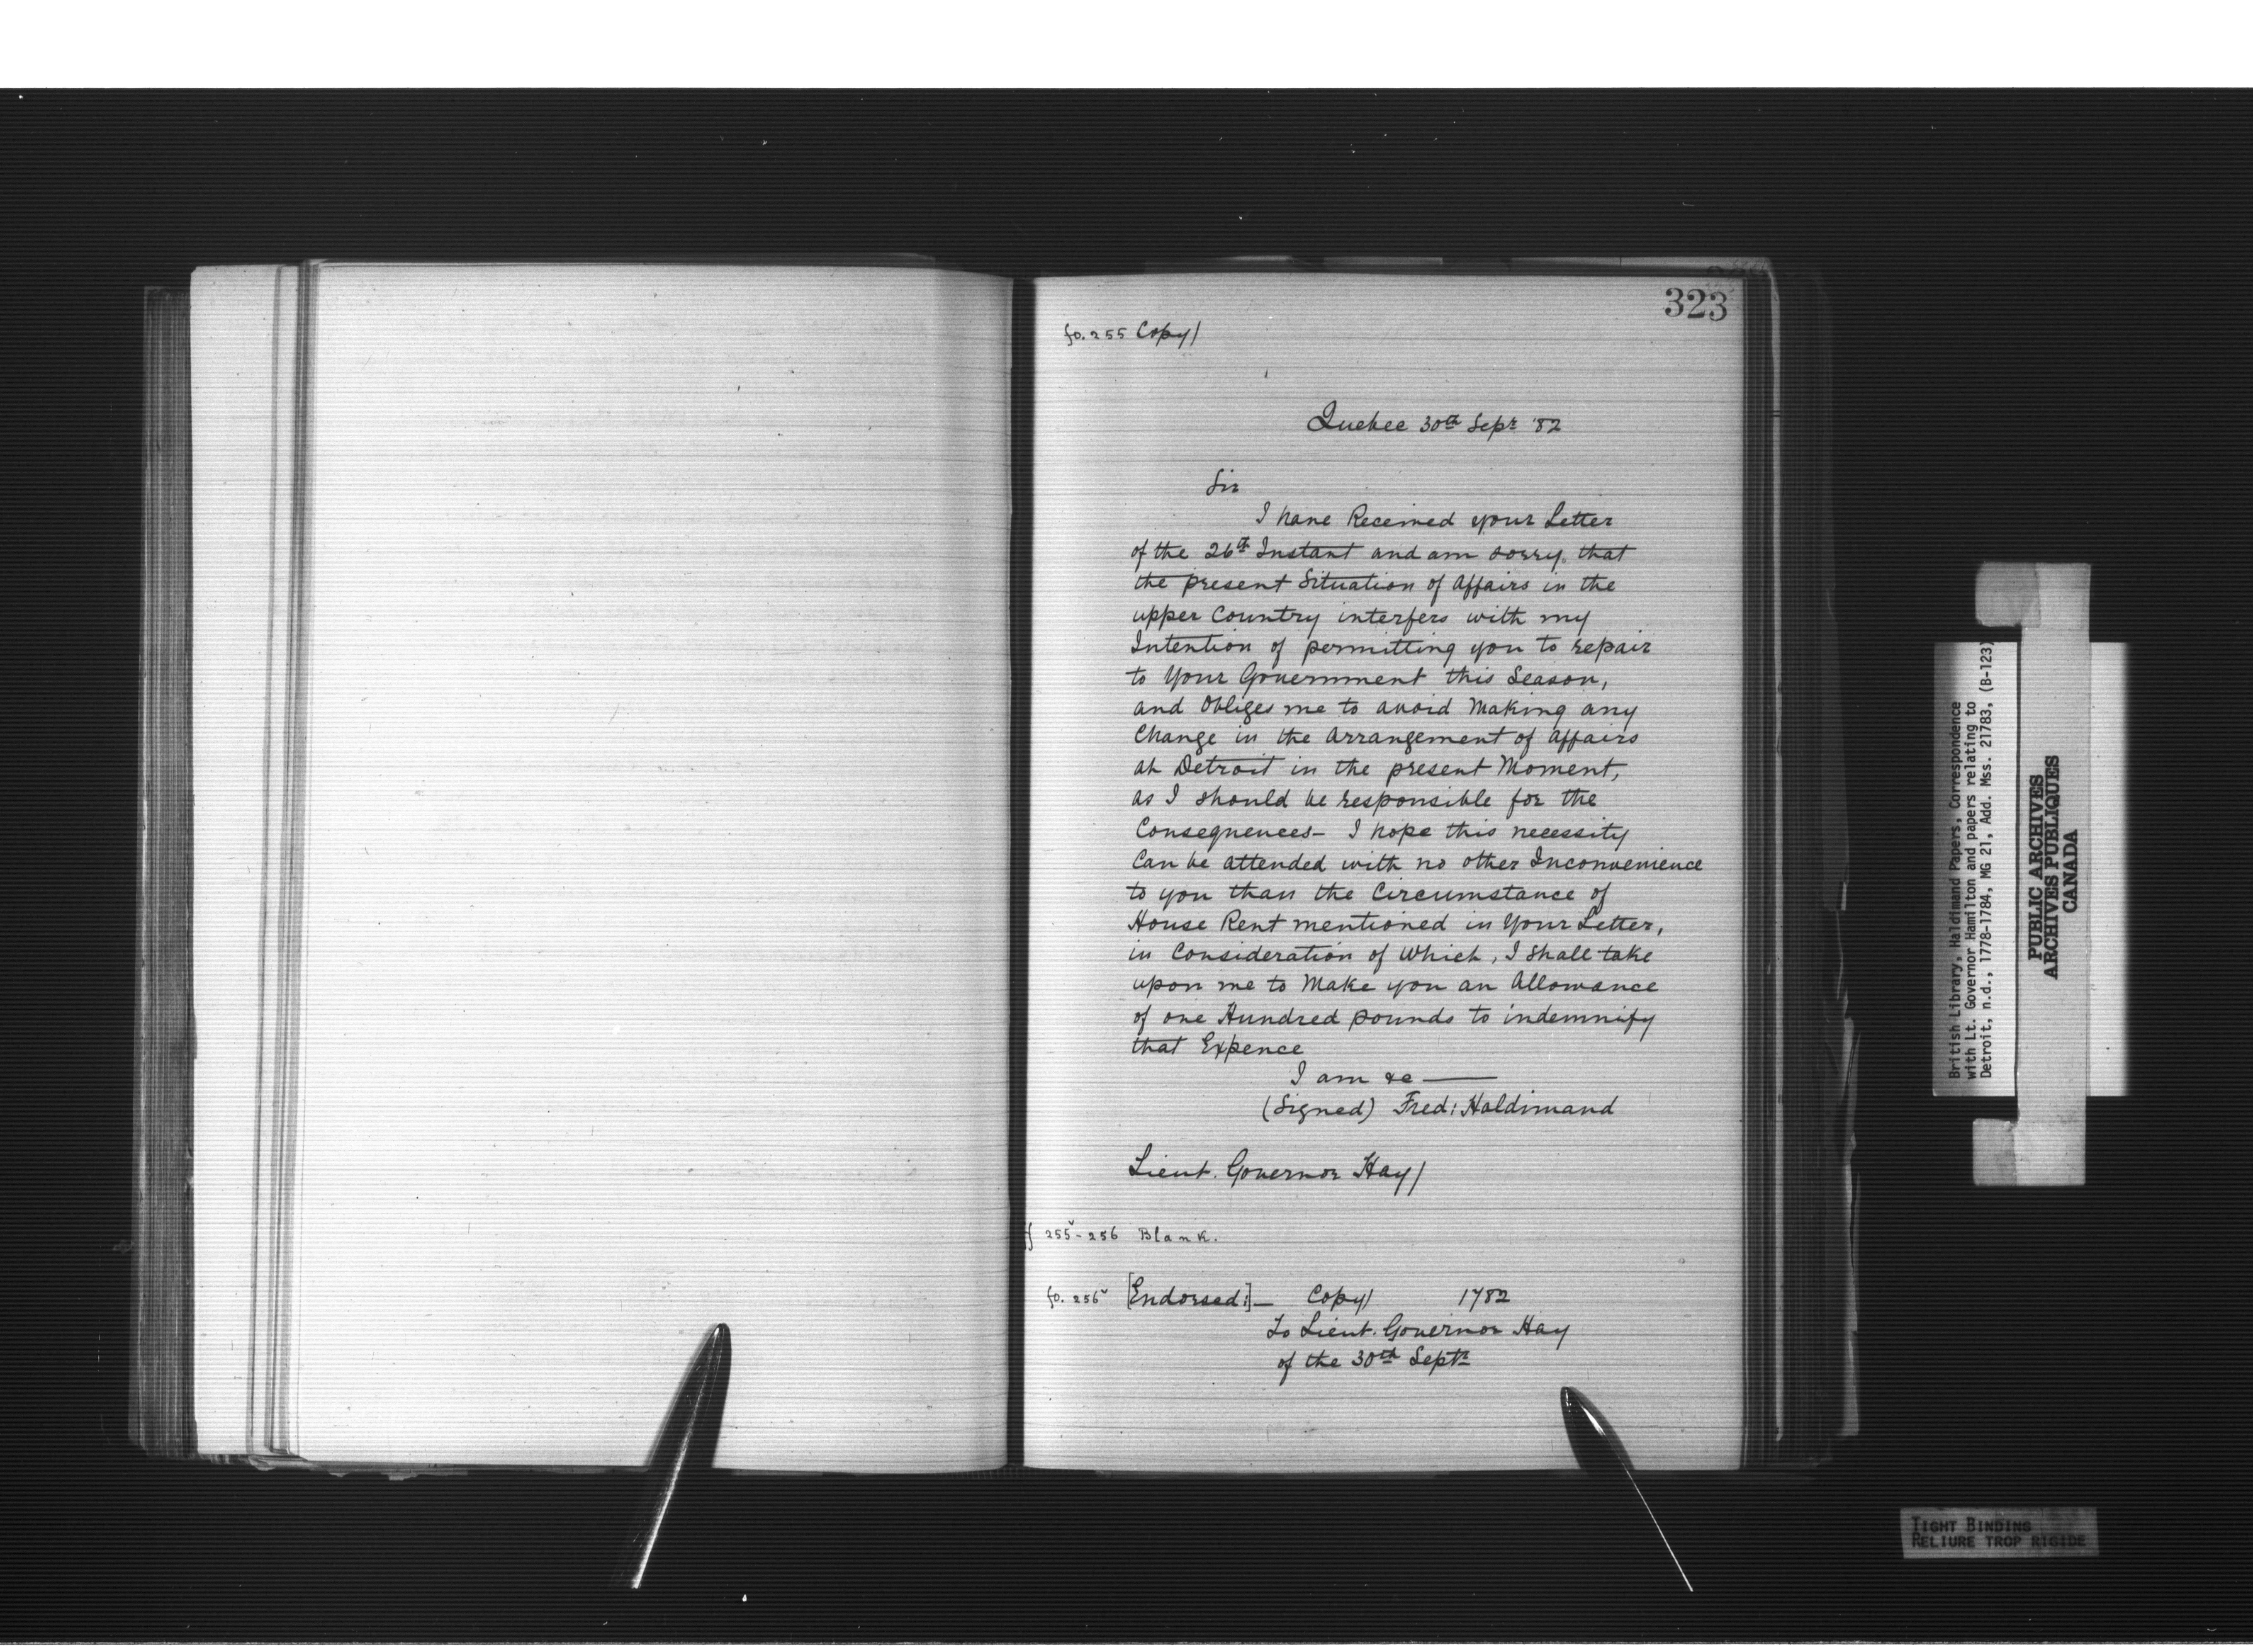 323
fo. 255 Copy/
Quebec 30th Sepr '82
Sir
I have Received your Letter
of the 26th Instant and am sorry that
the present Situation of Affairs in the
upper Country interfers with my
Intention of permitting you to repair
to Your Government this Season,
and Obliges me to avoid Making any
Change in the Arrangement of Affairs
at Detroit in the present Moment,
as I should be responsible for the
Consequences— I hope this necessity
Can be attended with no other Inconvenience
to you than the Circumstance of
House Rent mentioned in Your Letter,
in Consideration of Which, I shall take
upon me to Make you an Allowance
of one Hundred pounds to indemnify
that Expence
I am &c ——
(Signed) Fred: Haldimand
Lieut. Governor Hay/
f 255v - 256 Blank.
fo. 256v [Endorsed:]— Copy/ 1782
To Lieut. Governor Hay
of the 30th Septr
British Library, Haldimand Papers, Correspondence
with Lt. Governor Hamilton and papers relating to
Detroit, n.d., 1778-1784, MG 21, Add. Mss. 21783, (B-123)
PUBLIC ARCHIVES
ARCHIVES PUBLIQUES
CANADA
TIGHT BINDING
RELIURE TROP RIGIDE